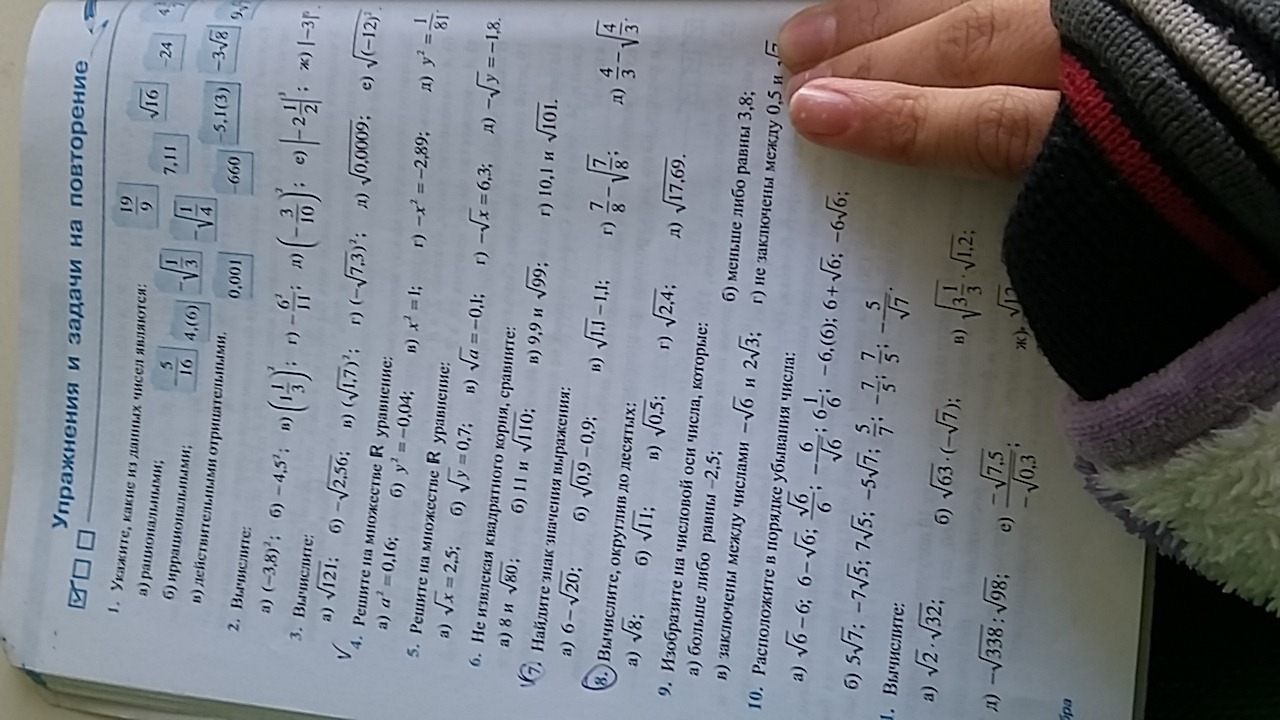 Упражнения и задачи на повторение
1. Укажите, какие из данных чисел являются:
а) рациональными;
б) иррациональными;
в) действительными отрицательными.
19/9 7,11 √16 -24
-5/16 4,(6) -√(1/3) -√(1/4)
0,001 -660 -5,1(3) -3√8
2. Вычислите:
а) (-3,8)²; б) -4,5²; в) (1 1/3)³; г) -6²/11; д) (-3/10)²; е) |-2 1/2|³; ж) |-3|³.
3. Вычислите:
а) √121; б) -√2,56; в) (√1,7)²; г) (-√7,3)²; д) √0,0009; е) √(-12)².
4. Решите на множестве R уравнение:
а) a² = 0,16; б) y² = -0,04; в) x² = 1; г) -x² = -2,89; д) y² = 1/81.
5. Решите на множестве R уравнение:
а) √x = 2,5; б) √y = 0,7; в) √a = -0,1; г) -√x = 6,3; д) -√y = -1,8.
6. Не извлекая квадратного корня, сравните:
а) 8 и √80; б) 11 и √110; в) 9,9 и √99; г) 10,1 и √101.
7. Найдите знак значения выражения:
а) 6 - √20; б) √0,9 - 0,9; в) √1,1 - 1,1; г) 7/8 - √(7/8); д) 4/3 - √(4/3).
8. Вычислите, округлив до десятых:
а) √8; б) √11; в) √0,5; г) √2,4; д) √17,69.
9. Изобразите на числовой оси числа, которые:
а) больше либо равны -2,5; б) меньше либо равны 3,8;
в) заключены между числами -√6 и 2√3; г) не заключены между 0,5 и
10. Расположите в порядке убывания числа:
а) √6 - 6; 6 - √6; √6/6; -6/√6; 6 1/6; -6,(6); 6 + √6; -6√6;
б) 5√7; -7√5; 7√5; -5√7; 5/7; -7/5; 7/5; -5/√7.
1. Вычислите:
а) √2 · √32; б) √63 · (-√7); в) √(3 1/3) · √1,2;
д) -√338 : √98; е) -√7,5/-√0,3; ж)